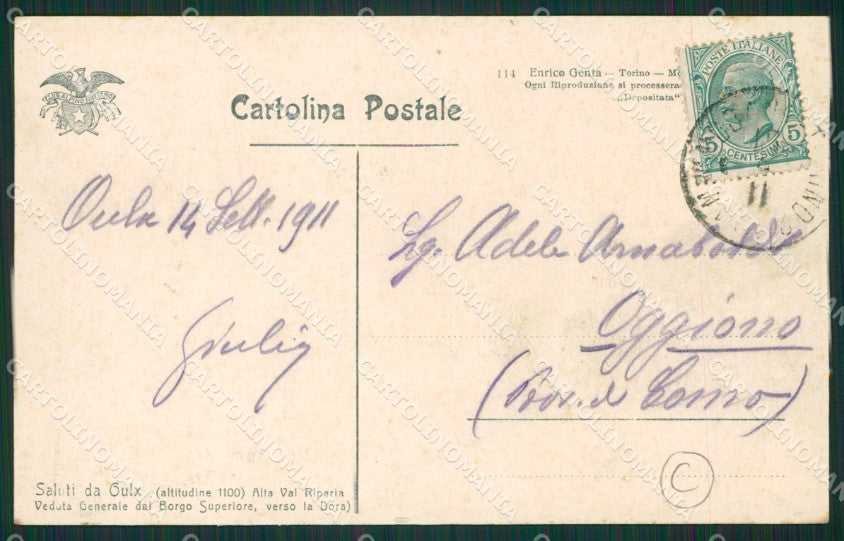 CLUB ALPINO
114 Enrico Genta — Torino — Mo
Ogni Riproduzione si processera
„Depositata"
Cartolina Postale
POSTE ITALIANE
5 5
CENTESIMI
11
Oulx 14 Sett. 1911
Giulia
Sg. Adele Arnaboldi
Oggiono
(Prov. di Como)
C
Saluti da Oulx (altitudine 1100) Alta Val Riparia
Veduta Generale dal Borgo Superiore, verso la Dora)
CARTOLINOMANIA